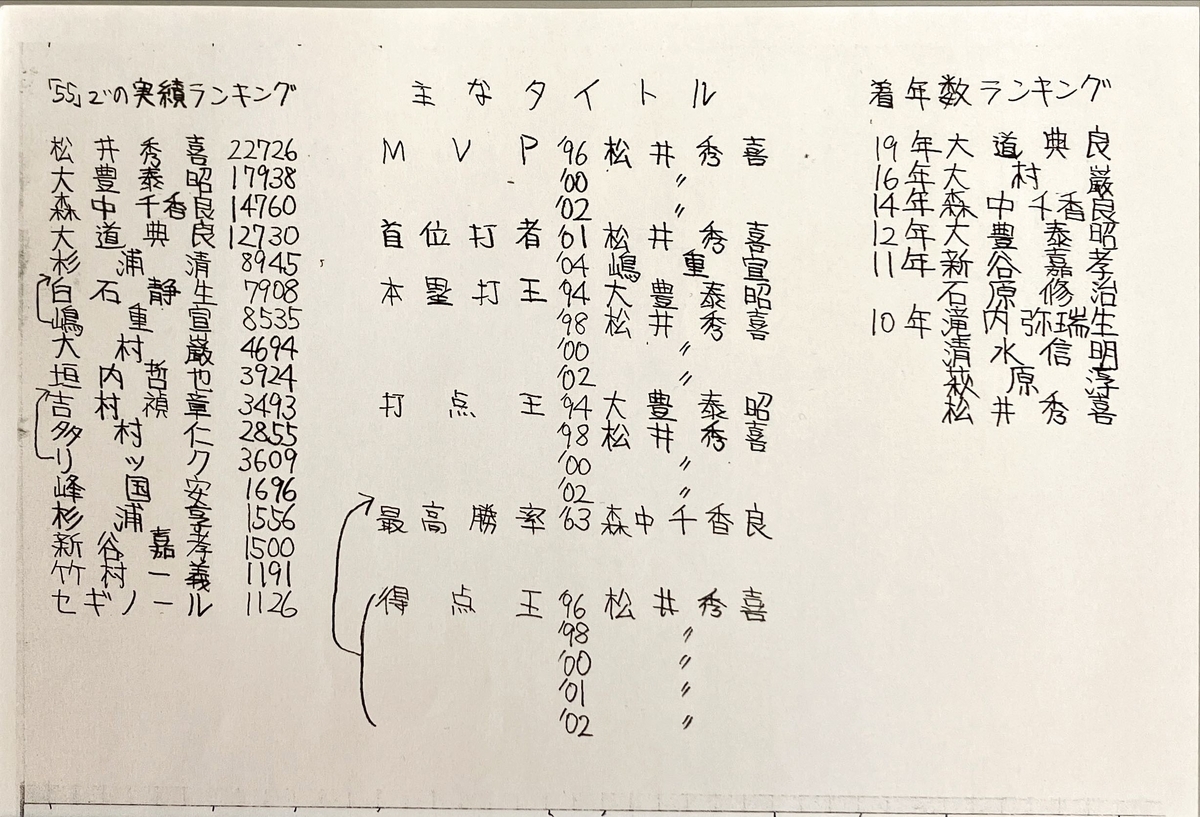 「55」での実績ランキング
松井秀喜 22726
大豊泰昭 17938
森中千香良 14760
大道典良 12730
杉浦清 8945
白石静生 7908
嶋重宣 8535
大村巌 4694
垣内哲也 3924
吉村禎章 3493
多村仁 2855
リック 3609
峰国安 1696
杉浦享 1556
新谷嘉孝 1500
竹村一義 1191
セギノール 1126
主なタイトル
MVP '96 松井秀喜
'00 〃
'02 〃
首位打者 '01 松井秀喜
'04 嶋重宣
本塁打王 '94 大豊泰昭
'98 松井秀喜
'00 〃
'02 〃
打点王 '94 大豊泰昭
'98 松井秀喜
'00 〃
'02 〃
最高勝率 '63 森中千香良
得点王 '96 松井秀喜
'98 〃
'00 〃
'01 〃
'02 〃
着年数ランキング
19年 大道典良
16年 大村巌
14年 森中千香良
12年 大豊泰昭
11年 新谷嘉孝
石原修治
10年 滝内弥瑞生
清水信明
萩原淳
松井秀喜